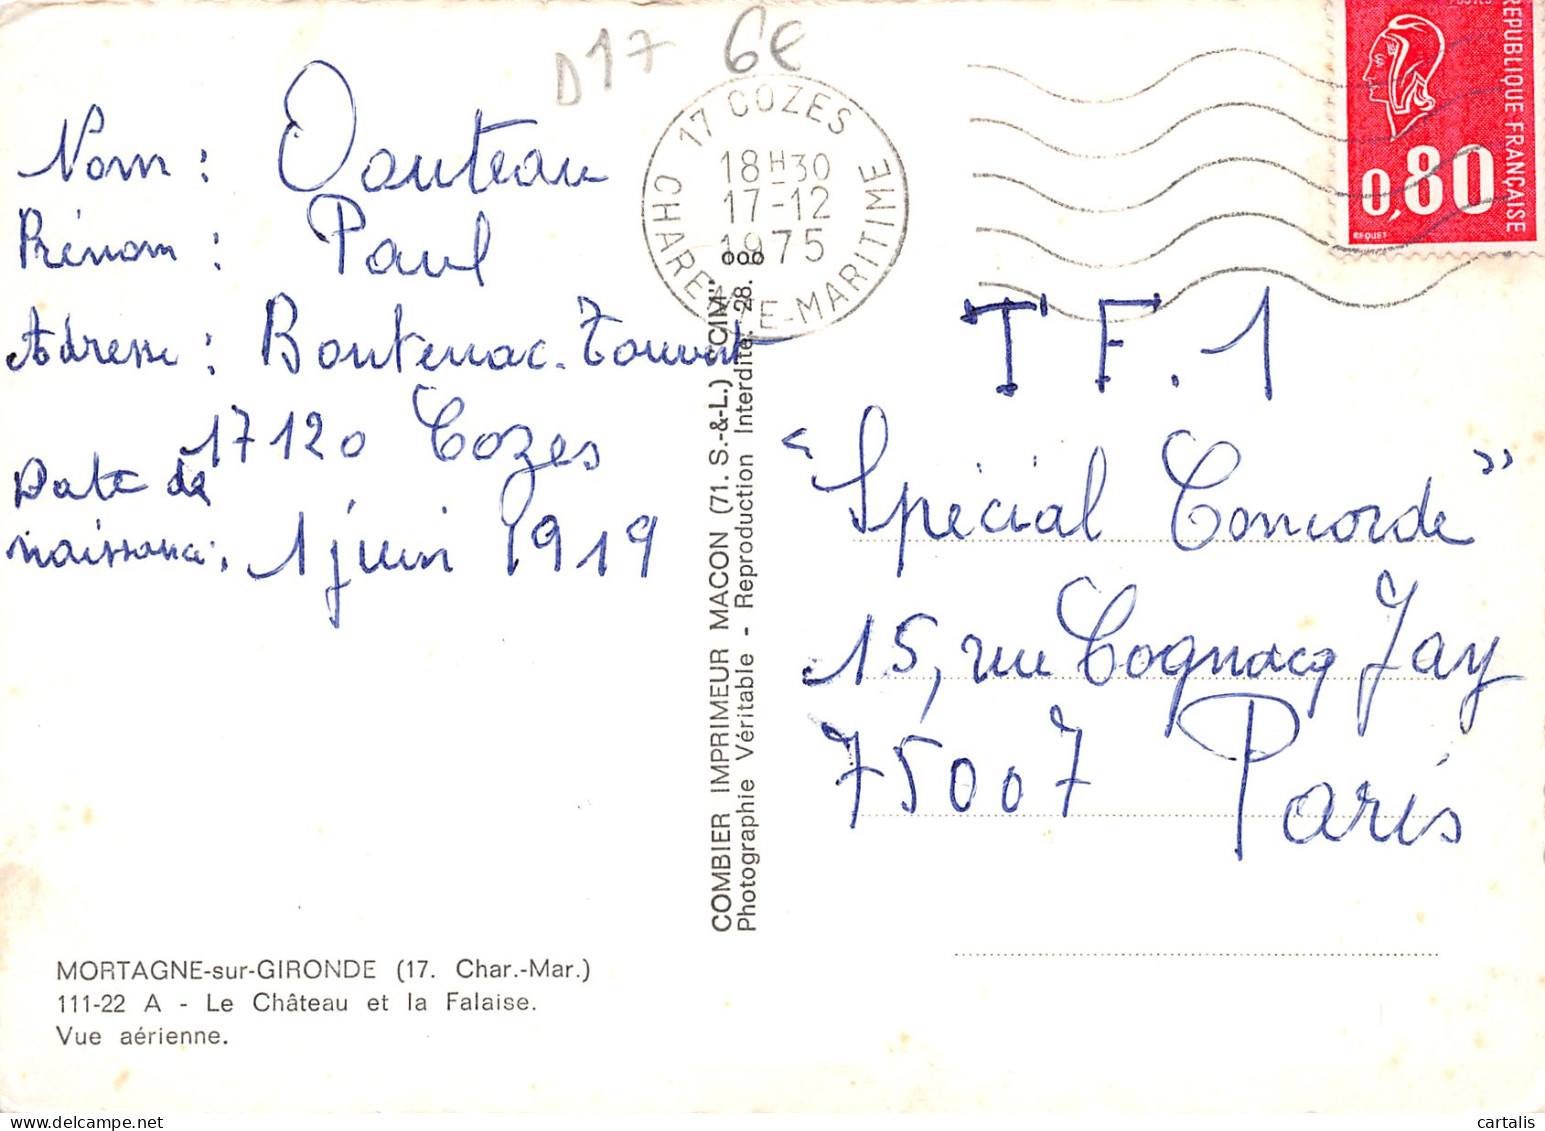 D17 6€
Nom :
Prénom : Paul
Adresse : Boutenac-Touvent
17120 Cozes
Date de
naissance : 1 juin 1919
17 COZES
18H30
17-12
1975
CHARENTE-MARITIME
POSTES
REPUBLIQUE FRANÇAISE
0,80
BEQUET
T F. 1
"Spécial Concorde"
15, rue Cognacq Jay
75007 Paris
COMBIER IMPRIMEUR MACON (71. S.-&-L.) "CIM"
Photographie Véritable - Reproduction Interdite. 28.
MORTAGNE-sur-GIRONDE (17. Char.-Mar.)
111-22 A - Le Château et la Falaise.
Vue aérienne.
cartalis